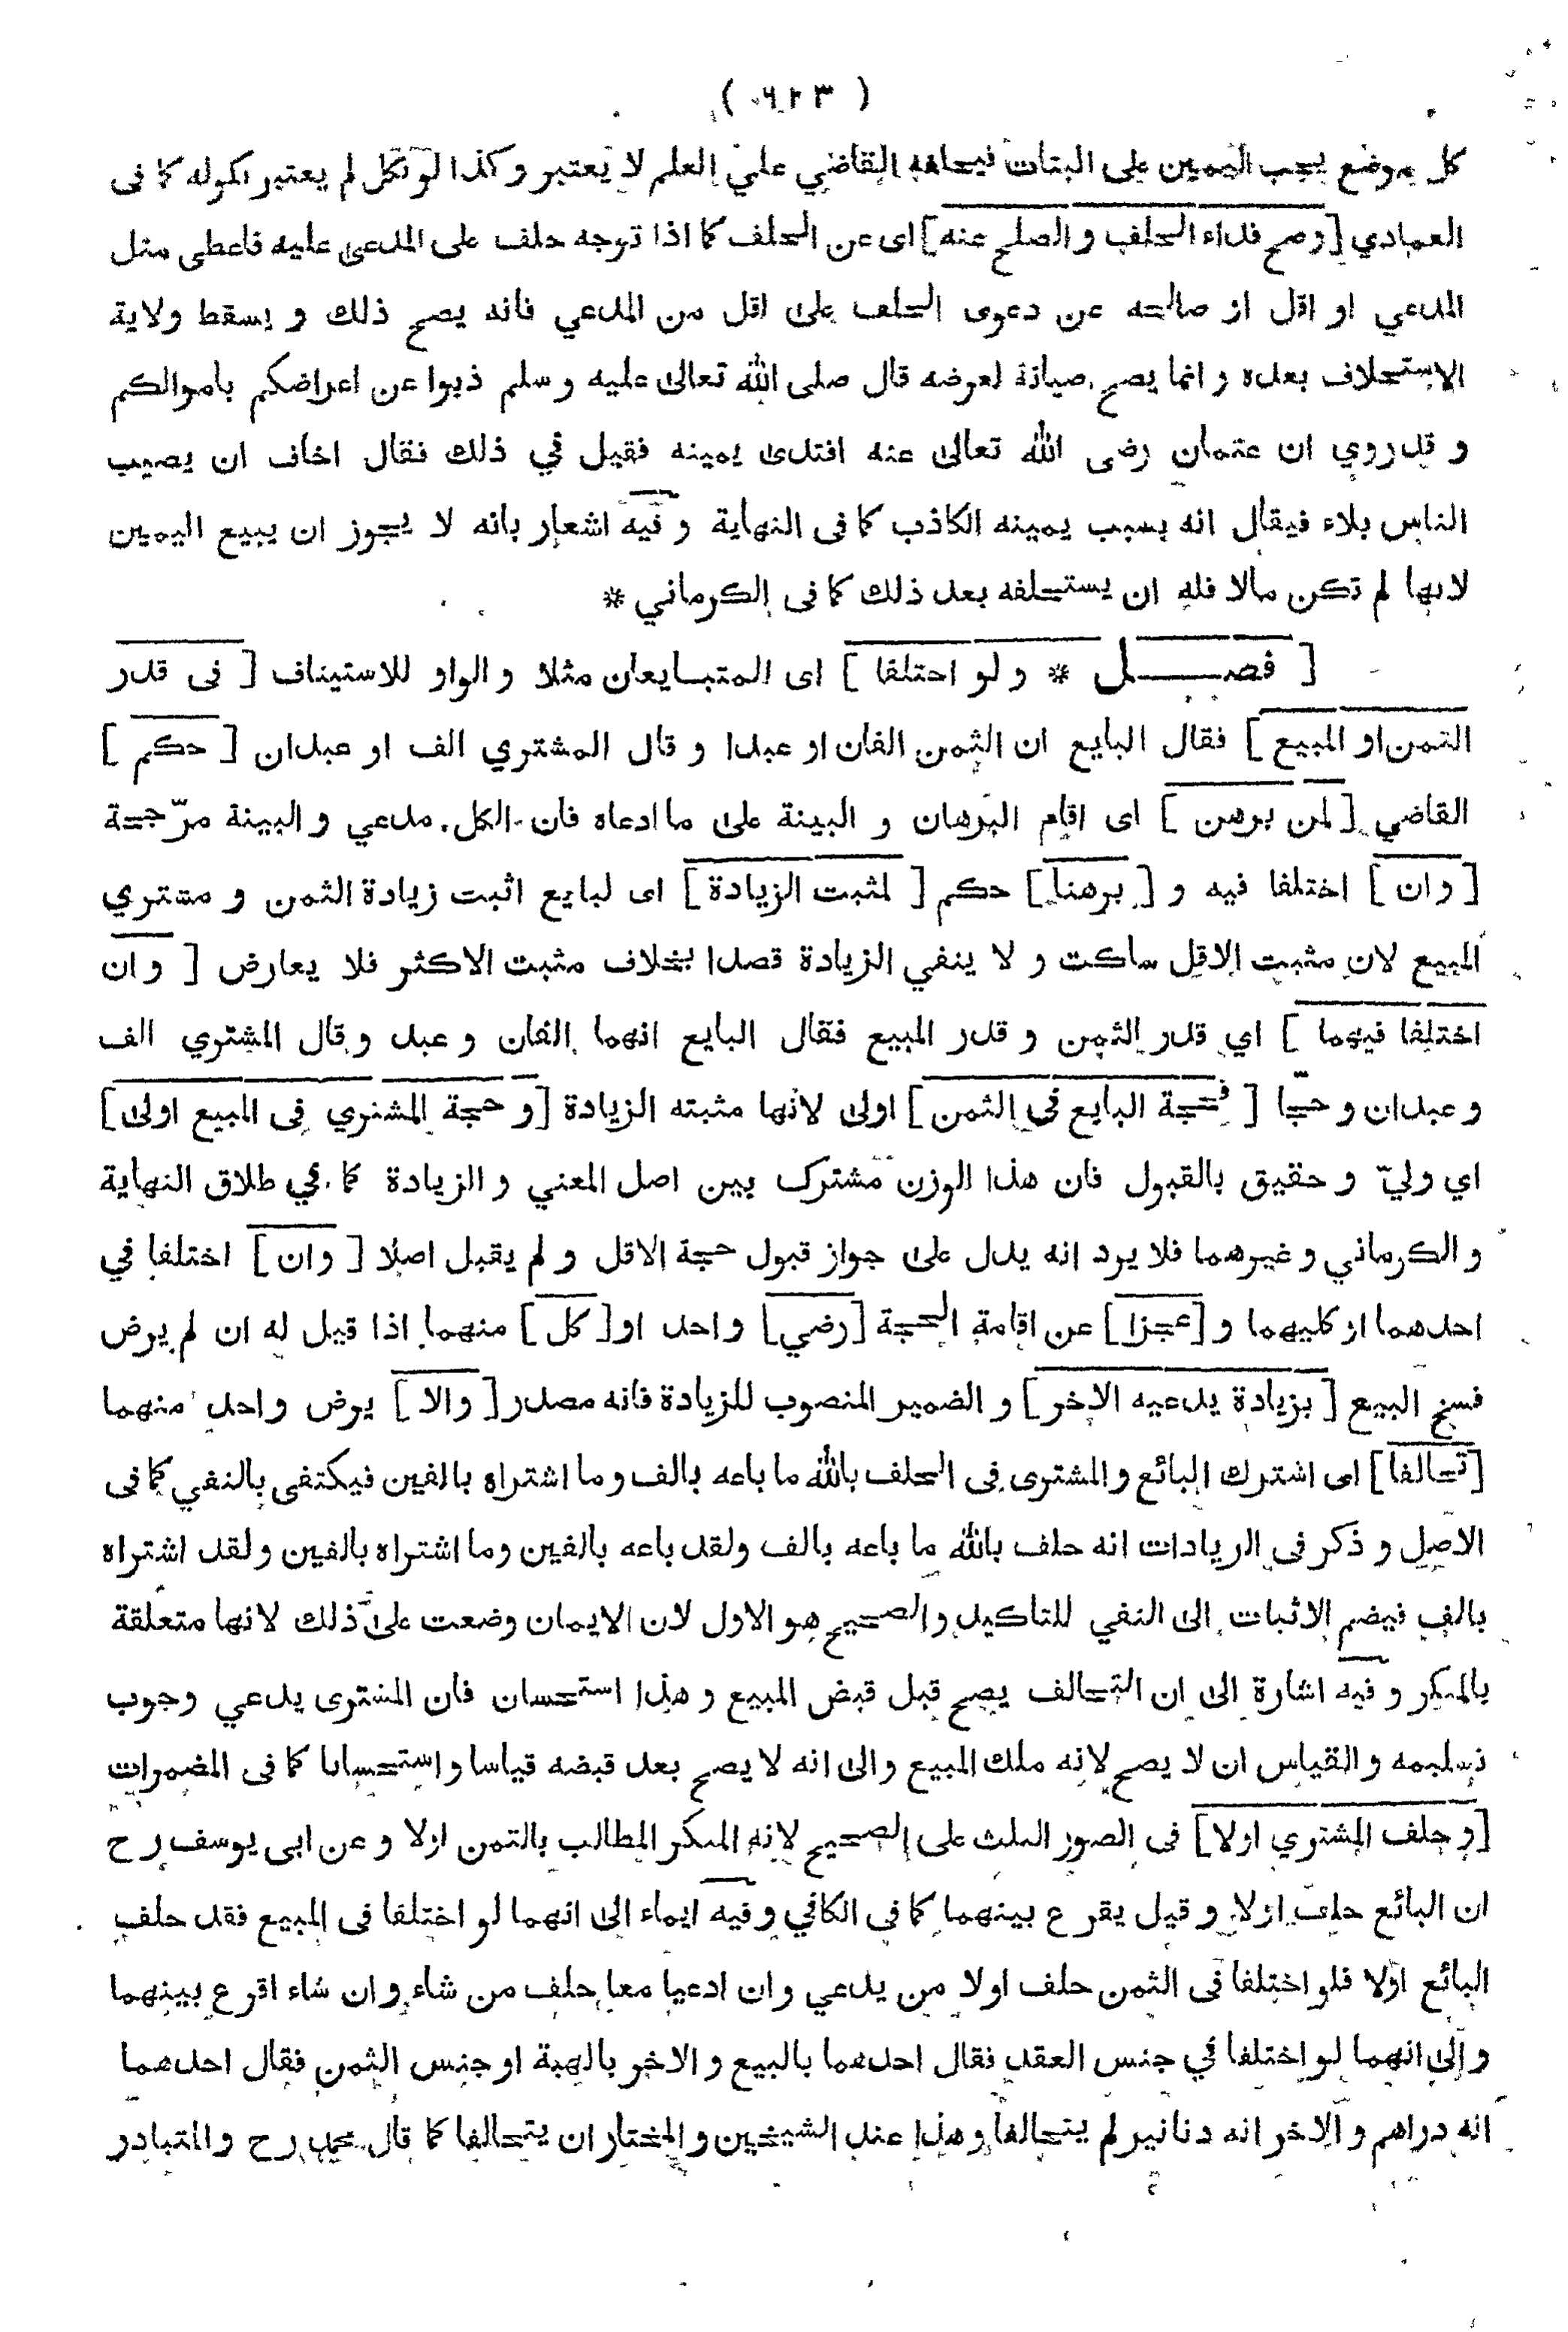 ( ٦٢٣ )
كل موضع يجب اليمين على البتات فيحلفه القاضي علي العلم لا يعتبر وكذا لو نكل لم يعتبر نكوله كما فى
العمادي [وصح فداء الحلف و الصلح عنه] اى عن الحلف كما اذا توجه حلف على المدعى عليه فاعطى مثل
المدعي او اقل او صالحه عن دعوى الحلف على اقل من المدعي فانه يصح ذلك و يسقط ولاية
الاستحلاف بعده و انما يصح صيانة لعرضه قال صلى الله تعالى عليه و سلم ذبوا عن اعراضكم باموالكم
و قد روي ان عثمان رضى الله تعالى عنه افتدى يمينه فقيل في ذلك فقال اخاف ان يصيب
الناس بلاء فيقال انه بسبب يمينه الكاذب كما فى النهاية و فيه اشعار بانه لا يجوز ان يبيع اليمين
لانها لم تكن مالا فله ان يستحلفه بعد ذلك كما فى الكرماني *
[ فصــــل * و لو اختلفا ] اى المتبــايعان مثلا و الواو للاستيناف [ فى قدر
الثمن او المبيع ] فقال البايع ان الثمن الفان او عبدا و قال المشتري الف او عبدان [ حكم ]
القاضي [ لمن برهن ] اى اقام البرهان و البينة على ما ادعاه فان الكل مدعي و البينة مرّجحة
[ و ان ] اختلفا فيه و [ برهنا ] حكم [ لمثبت الزيادة ] اى لبايع اثبت زيادة الثمن و مشتري
المبيع لان مثبت الاقل ساكت و لا ينفي الزيادة قصدا بخلاف مثبت الاكثر فلا يعارض [ و ان
اختلفا فيهما ] اي قدر الثمن و قدر المبيع فقال البايع انهما الفان و عبد و قال المشتري الف
و عبدان و حجّا [ فحجة البايع في الثمن ] اولى لانها مثبته الزيادة [ و حجة المشتري فى المبيع اولى ]
اي وليّ و حقيق بالقبول فان هذا الوزن مشترك بين اصل المعني و الزيادة كما في طلاق النهاية
و الكرماني و غيرهما فلا يرد انه يدل على جواز قبول حجة الاقل و لم يقبل اصلا [ و ان ] اختلفا في
احدهما او كليهما و [عجزا] عن اقامة الحجة [رضي] واحد او [ كل ] منهما اذا قيل له ان لم يرض
فسخ البيع [ بزيادة يدعيه الاخر ] و الضمير المنصوب للزيادة فانه مصدر [ والا ] يرض واحد منهما
[تحالفا] اى اشترك البائع و المشترى فى الحلف بالله ما باعه بالف و ما اشتراه بالفين فيكتفى بالنفي كما فى
الاصل و ذكر فى الزيادات انه حلف بالله ما باعه بالف ولقد باعه بالفين وما اشتراه بالفين ولقد اشتراه
بالف فيضم الاثبات الى النفي للتاكيد والصحيح هو الاول لان الايمان وضعت على ذلك لانها متعلقة
بالمنكر و فيه اشارة الى ان التحالف يصح قبل قبض المبيع و هذا استحسان فان المشترى يدعي وجوب
تسليمه والقياس ان لا يصح لانه ملك المبيع والى انه لا يصح بعد قبضه قياسا واستحسانا كما فى المضمرات
[و حلف المشتري اولا] فى الصور الثلث على الصحيح لانه المنكر المطالب بالثمن اولا و عن ابى يوسف رح
ان البائع حلف اولا و قيل يقرع بينهما كما فى الكافي و فيه ايماء الى انهما لو اختلفا فى المبيع فقد حلف
البائع اولا فلو اختلفا فى الثمن حلف اولا من يدعي وان ادعيا معا حلف من شاء وان شاء اقرع بينهما
و الى انهما لو اختلفا في جنس العقد فقال احدهما بالبيع و الاخر بالهبة او جنس الثمن فقال احدهما
انه دراهم و الاخر انه دنانير لم يتحالفا و هذا عند الشيخين و المختار ان يتحالفا كما قال محمد رح و المتبادر